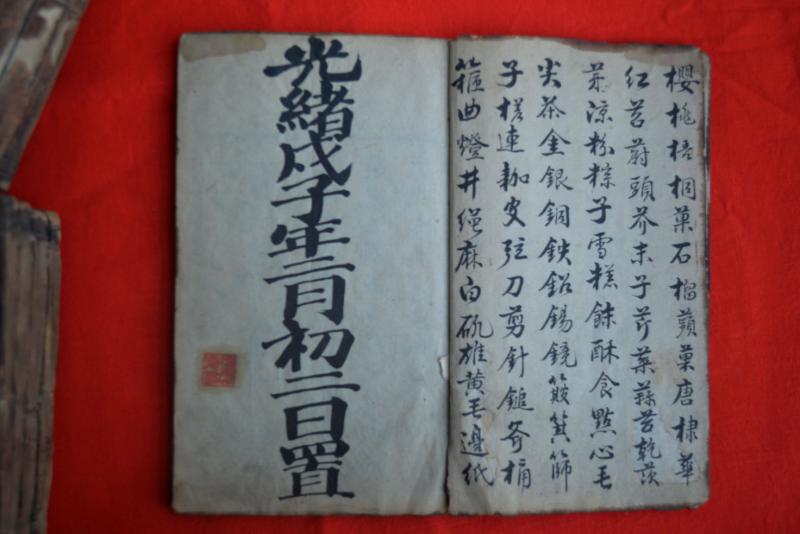 櫻桃梧桐菓石榴蘋菓唐棣華
红苕蔚頭芥末子芹菜蒜苔乾
菜涼粉粽子雪糕酥食點心毛
尖茶金銀銅鉄鉛錫鏡簸箕篩
子槎連耞皮弦刀剪針鎚斧桶
箍曲燈井繩麻白矾雄黄毛邊紙
光緒戊子年二月初二日置